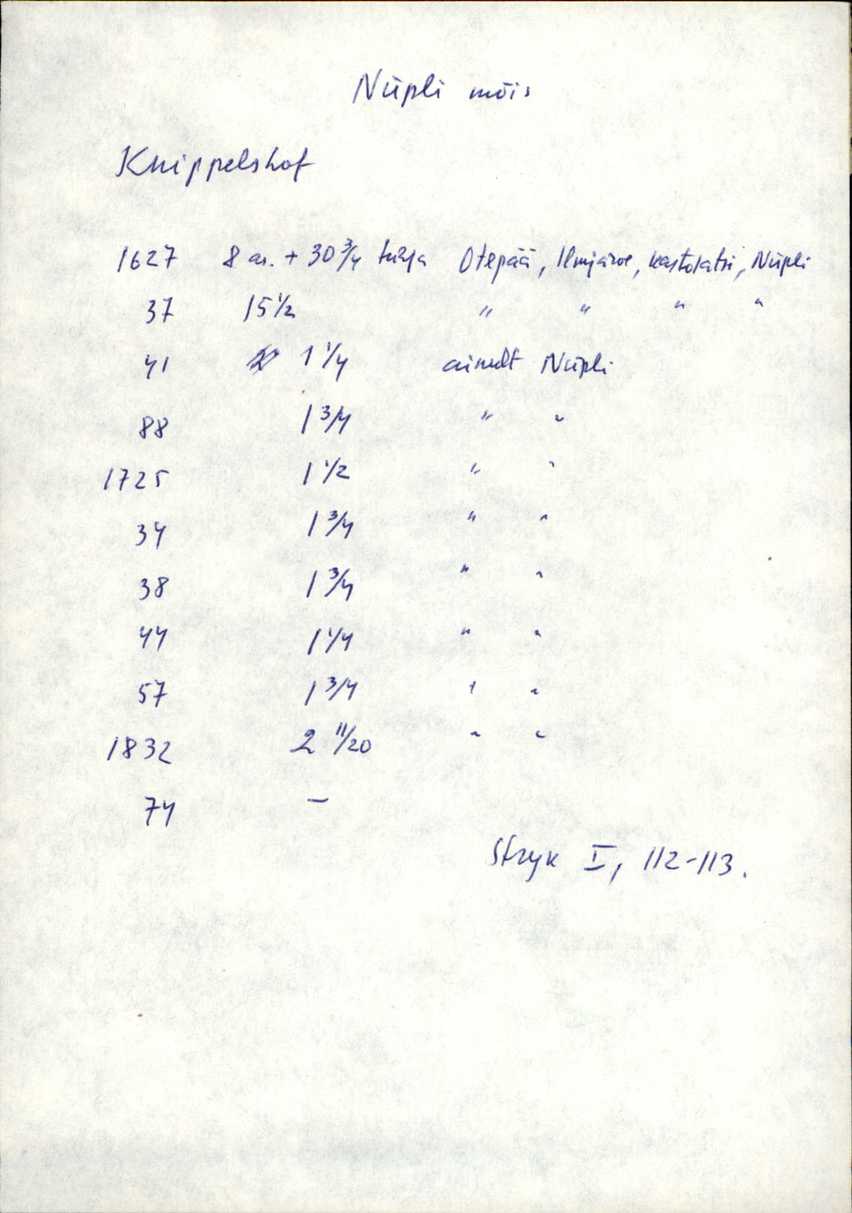 Nüpli mõis
Knippelshof
1627 8 as. + 30 3/4 tühja Otepää, Ilmjärve, Kastolatsi, Nüpli
37 15 1/2 " " " "
41 1 1/4 ainult Nüpli
88 1 3/4 " "
1725 1 1/2 " "
34 1 3/4 " "
38 1 3/4 " "
44 1 1/4 " "
57 1 3/4 " "
1832 2 11/20 " "
74 –
Stryk I, 112-113.